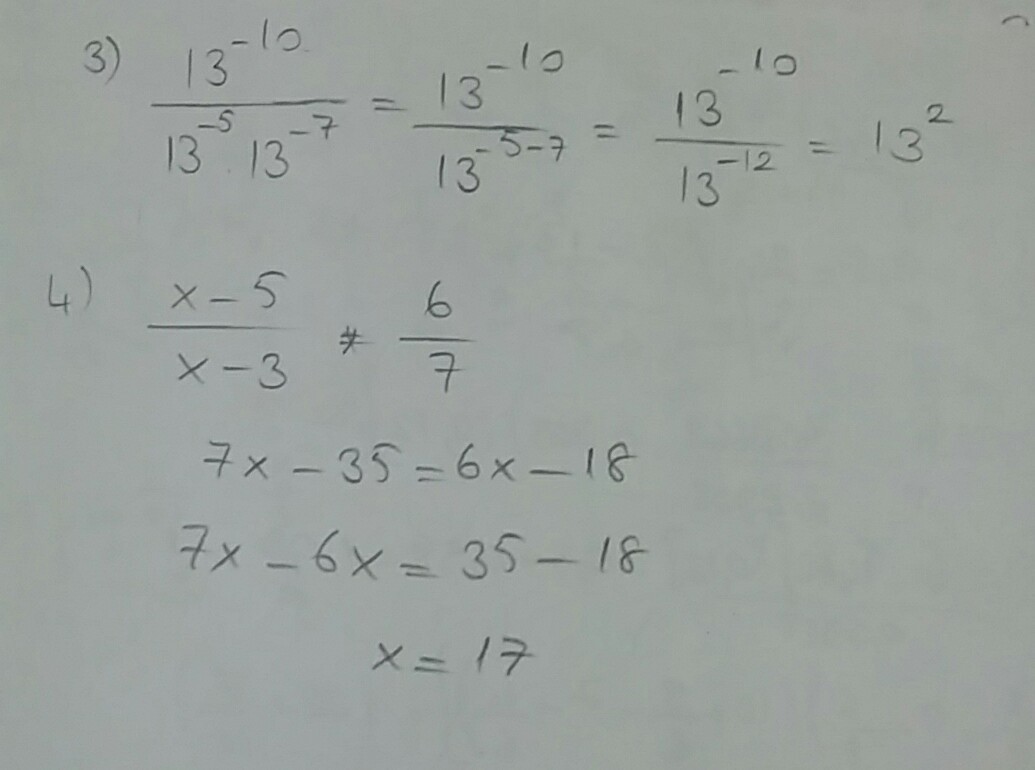 3) 13^-10 / 13^-5 . 13^-7 = 13^-10 / 13^-5-7 = 13^-10 / 13^-12 = 13^2
4) x-5 / x-3 ≠ 6 / 7
7x - 35 = 6x - 18
7x - 6x = 35 - 18
x = 17